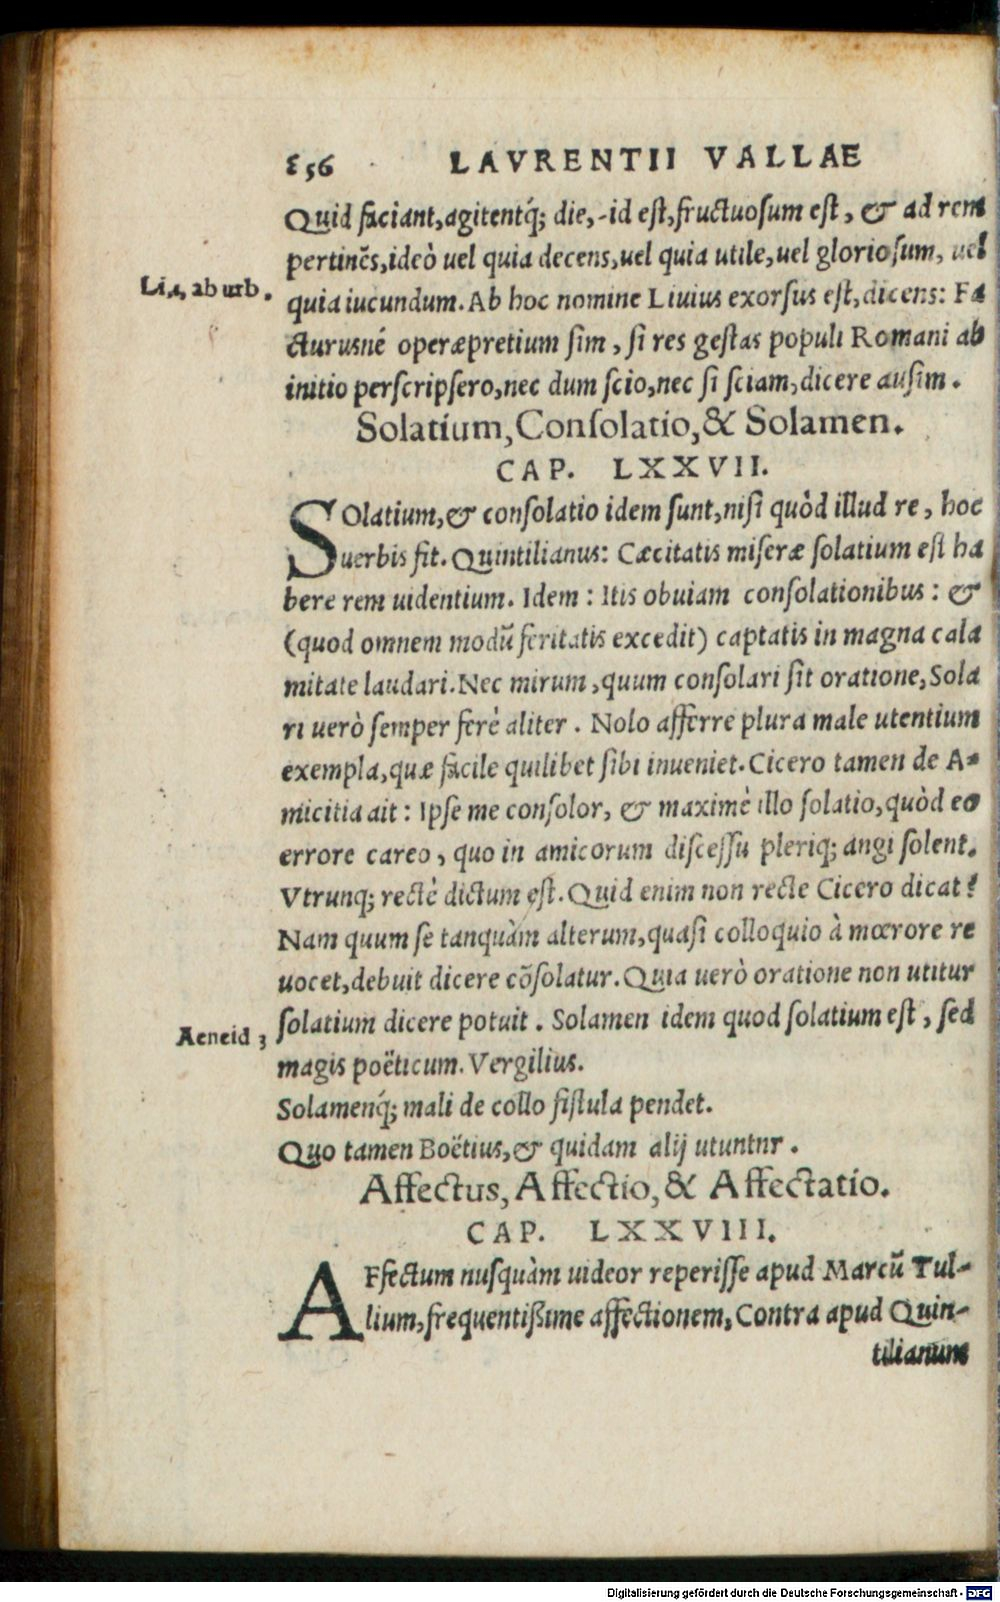 656 LAVRENTII VALLAE
Quid faciant, agitentq́; die, -id est, fructuosum est, & ad rem
pertinẽs, ideò uel quia decens, uel quia utile, uel gloriosum, uel
Li.1, ab urb.
quia iucundum. Ab hoc nomine Liuius exorsus est, dicens: Fa
cturusné operæpretium sim, si res gestas populi Romani ab
initio perscripsero, nec dum scio, nec si sciam, dicere ausim.
Solatium, Consolatio, & Solamen.
CAP. LXXVII.
SOlatium, & consolatio idem sunt, nisi quòd illud re, hoc
uerbis fit. Quintilianus: Cæcitatis miseræ solatium est ha
bere rem uidentium. Idem: Itis obuiam consolationibus: &
(quod omnem modũ feritatis excedit) captatis in magna cala
mitate laudari. Nec mirum, quum consolari sit oratione, Sola
ri uerò semper ferè aliter. Nolo afferre plura male utentium
exempla, quæ facile quilibet sibi inueniet. Cicero tamen de A-
micitia ait: Ipse me consolor, & maximè illo solatio, quòd eo
errore careo, quo in amicorum discessu pleriq; angi solent.
Vtrunq; rectè dictum est. Quid enim non recte Cicero dicat?
Nam quum se tanquàm alterum, quasi colloquio à mœrore re
uocet, debuit dicere cõsolatur. Quia uerò oratione non utitur
Aeneid 3
solatium dicere potuit. Solamen idem quod solatium est, sed
magis poëticum. Vergilius.
Solamenq́; mali de collo fistula pendet.
Quo tamen Boëtius, & quidam alij utuntnr.
Affectus, Affectio, & Affectatio.
CAP. LXXVIII.
AFfectum nusquàm uideor reperisse apud Marcũ Tul-
lium, frequentißime affectionem, Contra apud Quin-
tilianum
Digitalisierung gefördert durch die Deutsche Forschungsgemeinschaft - DFG